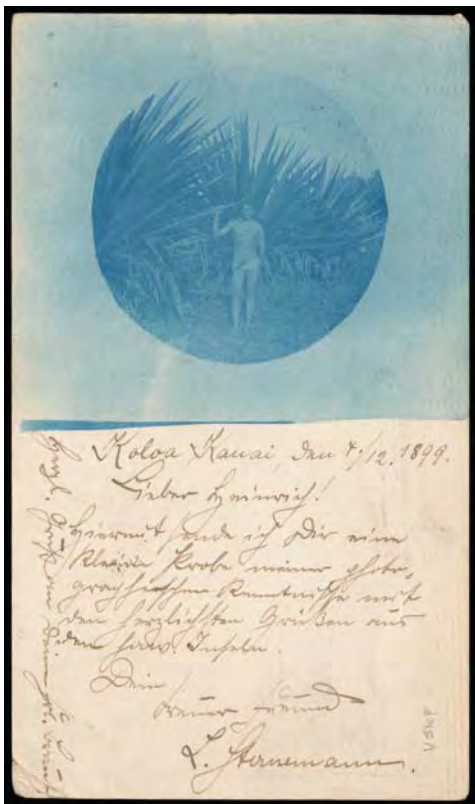 Koloa Kauai, den 4./12. 1899.
Lieber Heinrich!
Hiermit sende ich Dir eine
kleine Probe meiner photo-
graphischen Kenntnisse mit
den herzlichsten Grüßen aus
den haw. Inseln.
Dein
treuer Freund
L. Sternemann.
Herzl. Gruß an Deine
VSKF